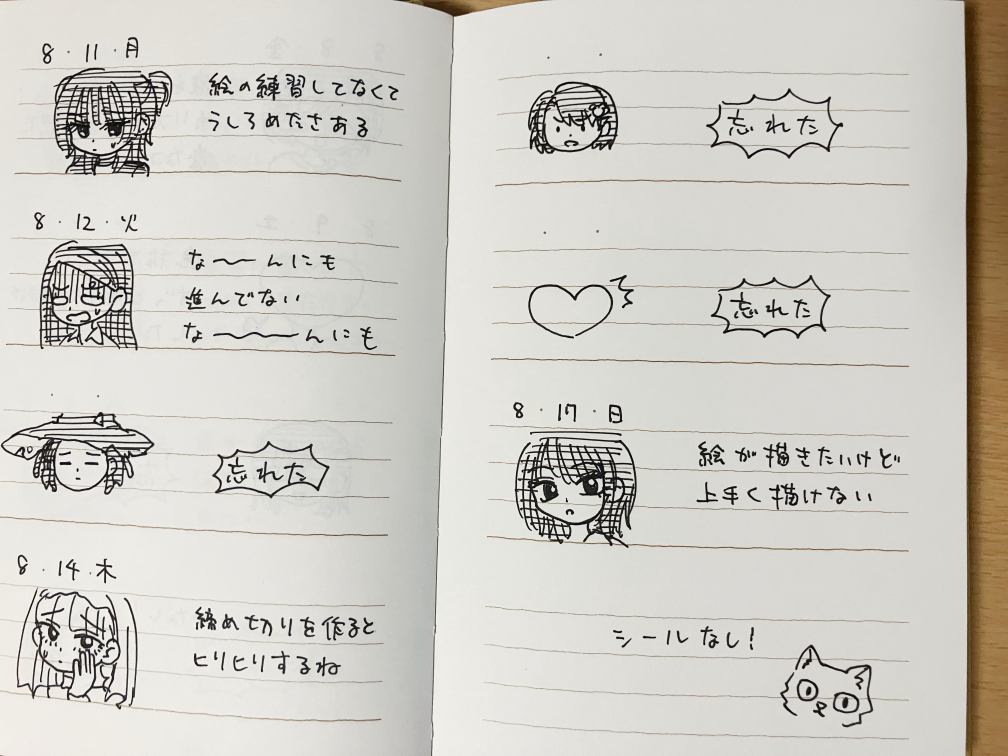 8・11・月
絵の練習してなくて
うしろめたさある
8・12・火
な〜〜んにも
進んでない
な〜〜〜んにも
忘れた
8・14・木
締め切りを作ると
ヒリヒリするね
忘れた
忘れた
8・17・日
絵が描きたいけど
上手く描けない
シールなし!